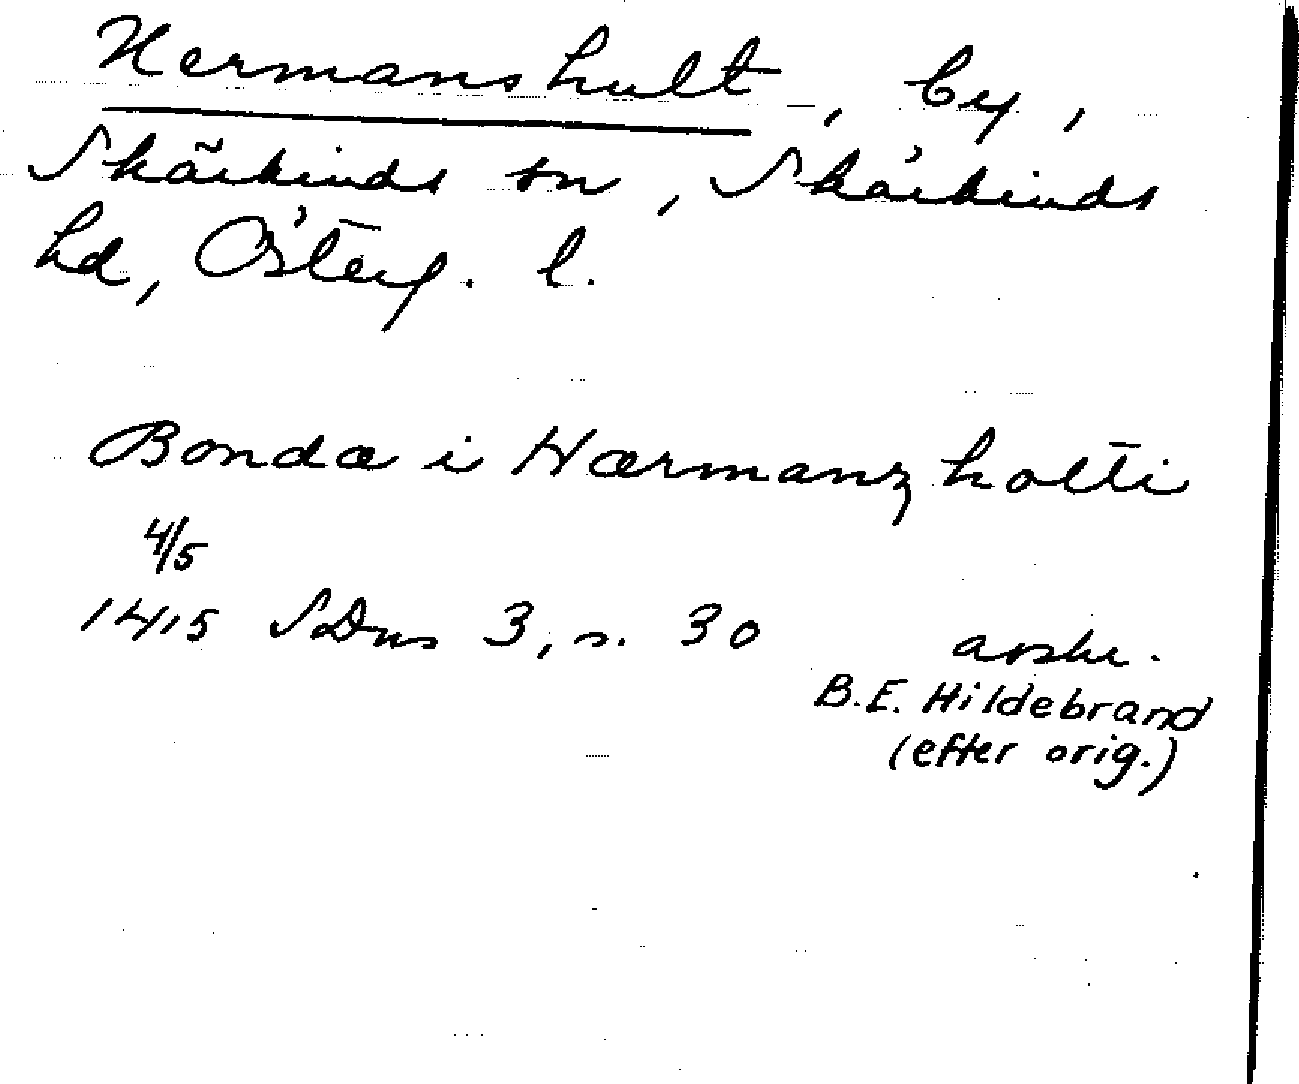 Hermanshult, by,
Skärkinds sn, Skärkinds
hd, Österg. l.
Bondæ i Hærmanz holti
4/5
1415 SDns 3, s. 30 avskr.
B.E. Hildebrand
(efter orig.)